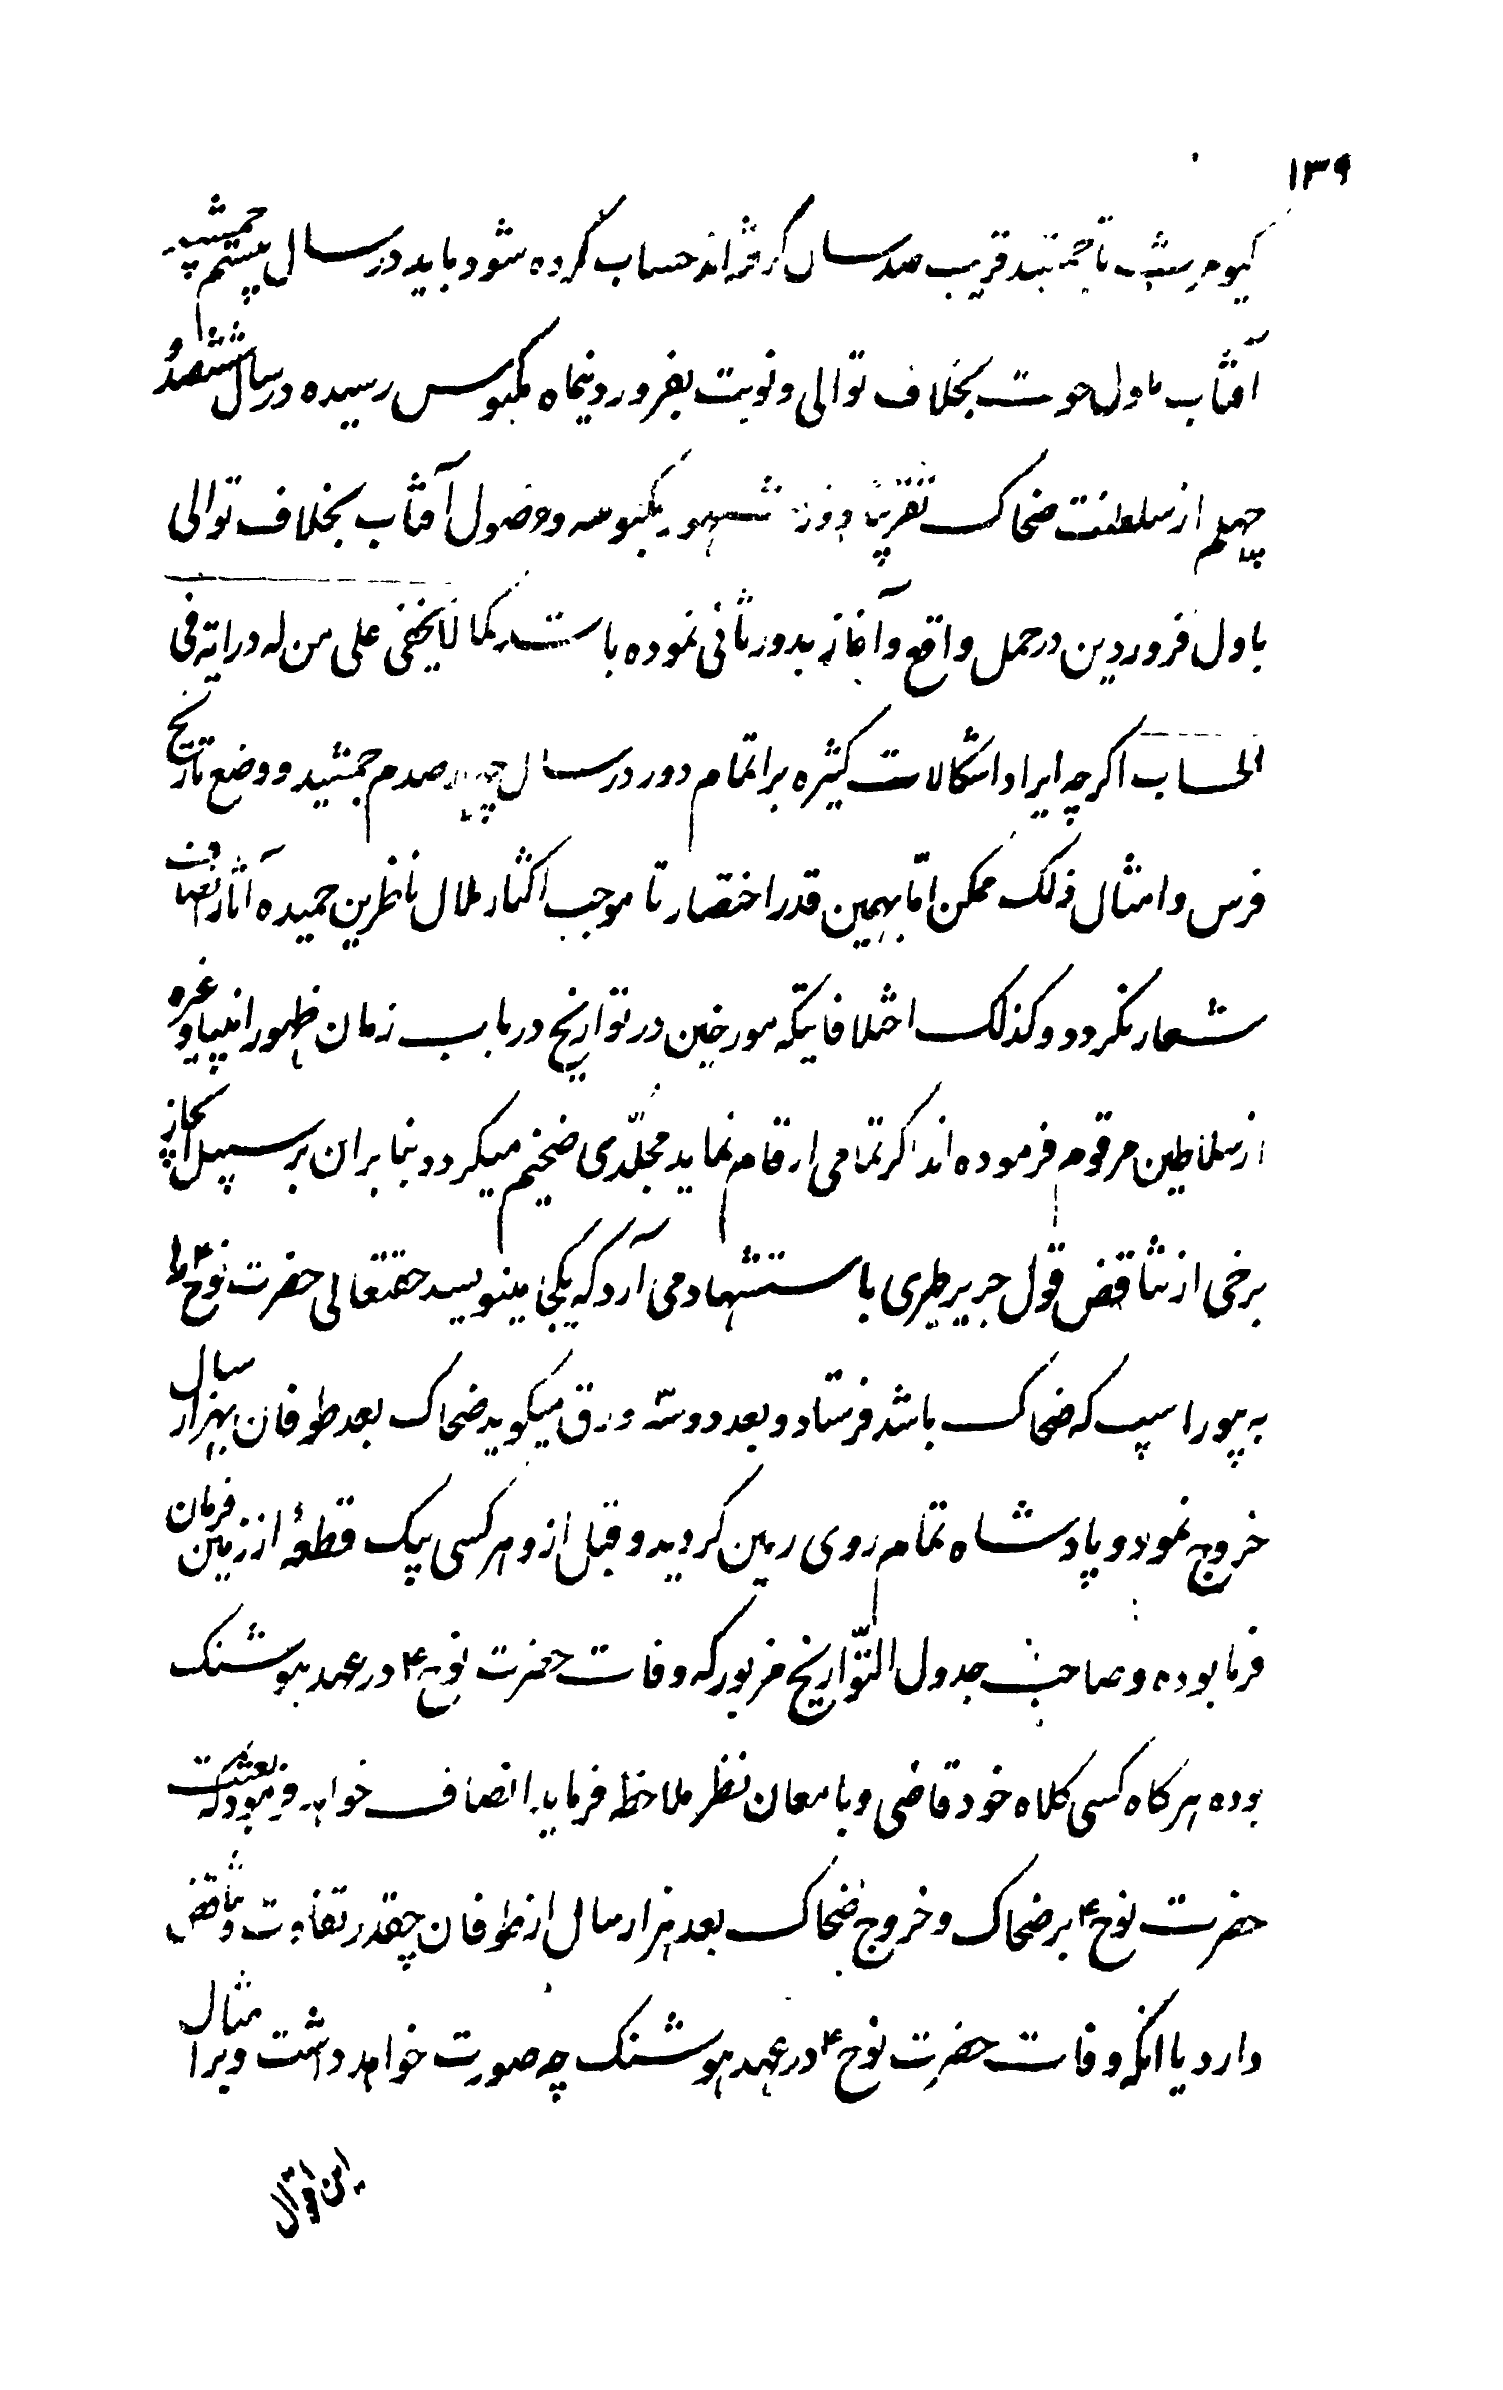 ۱۳۹
کیومرث تا جمشید قریب صد سال گرفته‌اند حساب کرده شود باید در سال بیستم جمشید
آفتاب باول حوت بخلاف توالی و نوبت بفروردینماه مکبوس رسیده در سال ششصد و
چهلم از سلطنت ضحاک تقریباً دور شهور مکبوسه و وصول آفتاب بخلاف توالی
باول فروردین در حمل واقع و آغاز بدور ثانی نموده باشد کما لا یخفی علی من له درایه فی
الحساب اگرچه ایراد اشکالات کثیره بر اتمام دور در سال چهارصدم جمشید و وضع تاریخ
فرس و امثال ذلک ممکن اما بهمین قدر اختصار تا موجب اکثار ملال ناظرین حمیده آثار
شعار نگردد و کذلک اختلافاتیکه مورخین در تواریخ در باب زمان ظهور انبیا و غیره
از سلاطین مرقوم فرموده‌اند اگر تمامی ارقام نماید مجلّدی ضخیم میگردد بنابران بر سبیل ایجاز
برخی از تناقض قول جریر طبری باستشهاد می‌آرد که یکجا مینویسد حقتعالی حضرت نوح ع را
به بیوراسپ که ضحاک باشد فرستاد و بعد دو سه ورق میگوید ضحاک بعد طوفان بهزار سال
خروج نمود و پادشاه تمام روی زمین گردید و قبل ازو هر کسی بیک قطعهٔ از زمین فرمان
فرما بوده و صاحب جدول التّواریخ مزبور که وفات حضرت نوح ع در عهد هوشنک
بوده هرگاه کسی کلاه خود قاضی و بامعان نظر ملاحظه فرماید انصاف خواهد فرمود که بعثت
حضرت نوح ع بر ضحاک و خروج ضحاک بعد هزار سال از طوفان چقدر تفاوت و تناقض
دارد یا آنکه وفات حضرت نوح ع در عهد هوشنک چه صورت خواهد داشت و بر امثال
این اقوال